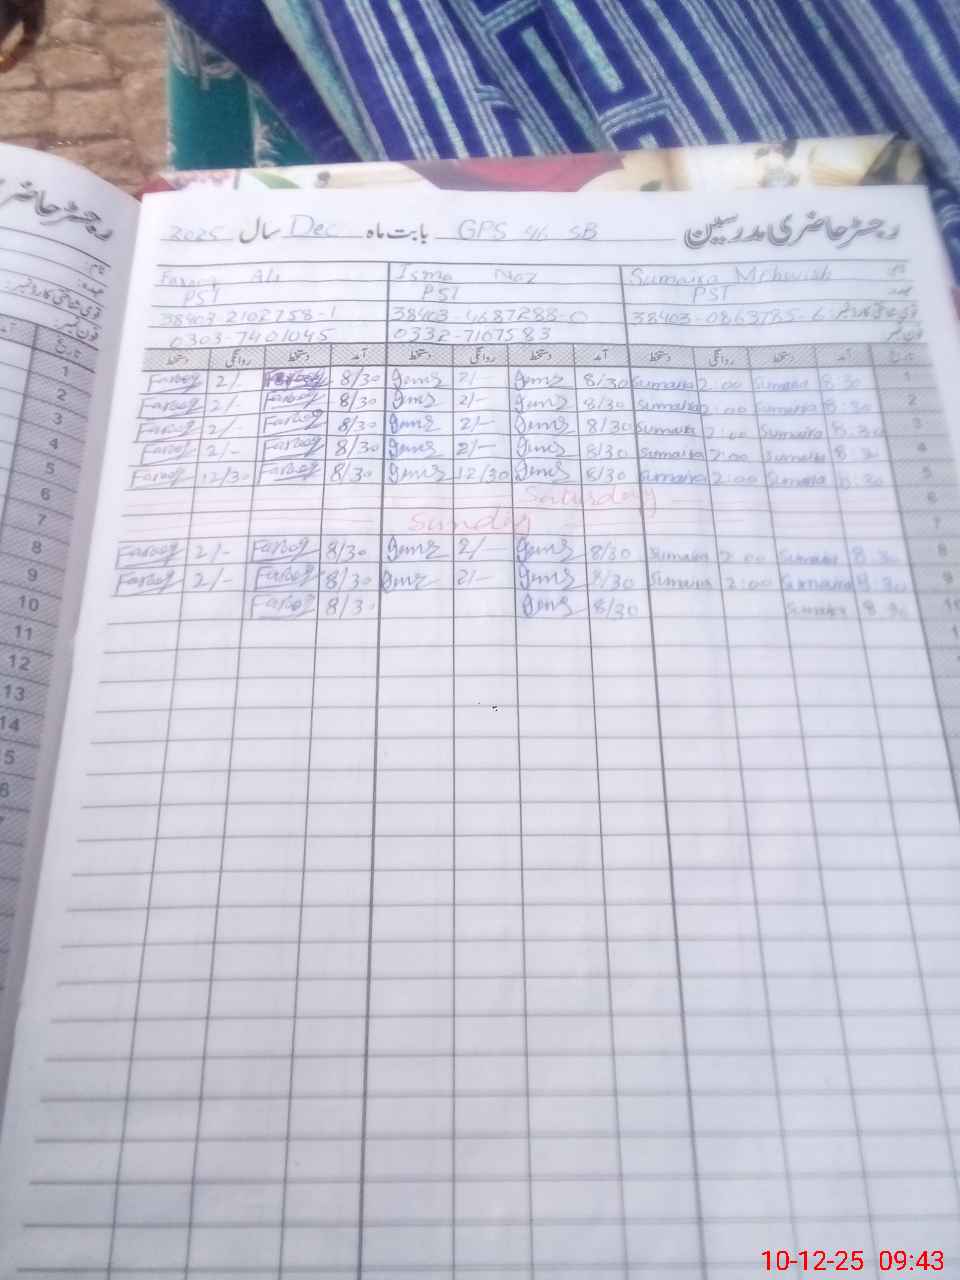 رجسٹر حاضری مدرسین GPS 46 SB بابت ماہ Dec سال 2025
Farooq Ali Isma Naz Sumaira Mehwish نام
PST PST PST عہدہ
38403-2102758-1 38403-4687288-0 38403-0863785-6
0303-7401045 0332-7167583 فون نمبر
دستخط روانگی دستخط آمد دستخط روانگی دستخط آمد دستخط روانگی دستخط آمد تاریخ
Farooq 2/- Farooq 8/30 2/- 8/30 Sumaira 2:00 Sumaira 8:30 1
Farooq 2/- Farooq 8/30 2/- 8/30 Sumaira 2:00 Sumaira 8:30 2
Farooq 2/- Farooq 8/30 2/- 8/30 Sumaira 2:00 Sumaira 8:30 3
Farooq 2/- Farooq 8/30 2/- 8/30 Sumaira 2:00 Sumaira 8:30 4
Farooq 12/30 Farooq 8/30 12/30 8/30 Sumaira 2:00 Sumaira 8:30 5
Saturday 6
Sunday 7
Farooq 2/- Farooq 8/30 2/- 8/30 Sumaira 2:00 Sumaira 8:30 8
Farooq 2/- Farooq 8/30 2/- 8/30 Sumaira 2:00 Sumaira 8:30 9
Farooq 8/30 8/30 Sumaira 8:30 10
رجسٹر حاضری
نام:
عہدہ:
قومی شناختی کارڈ نمبر:
فون نمبر:
تاریخ
1
2
3
4
5
6
7
8
9
10
11
12
13
14
10-12-25 09:43